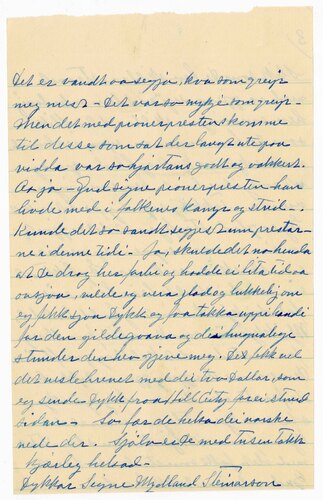 Det er vandt aa segja, kva som greip
meg mest - Det var so mykje som greip -
Men det med pionerprestens komme
til desse som sat der langt ute paa
vidda var so hjartans godt og vakkert.
Aa ja - Gud signe pionerpresten han
livde med i folkens kamp og strid -
Kunde det so sandt segjast um prestar-
ne i denne tidi - Ja, skulde det no henda
at De drog her forbi og hadde ei lita tid aa
avsjaa, vilde eg vera glad og lukkeleg om
eg fekk sjaa Dykk og faa takka uppi handi
for den gilde gaava og dei hugnalege
stunder den hev gjeve meg. De fekk vel
det visle brevet med dei two dollar, som
eg sende Dykk fraa Hill City for ei stund
sidan - So far de helsa dei norske
nede der. Sjølv er De med innsen takk
kjærleg helsad -
Dykkar Signe Mydland Steinarson